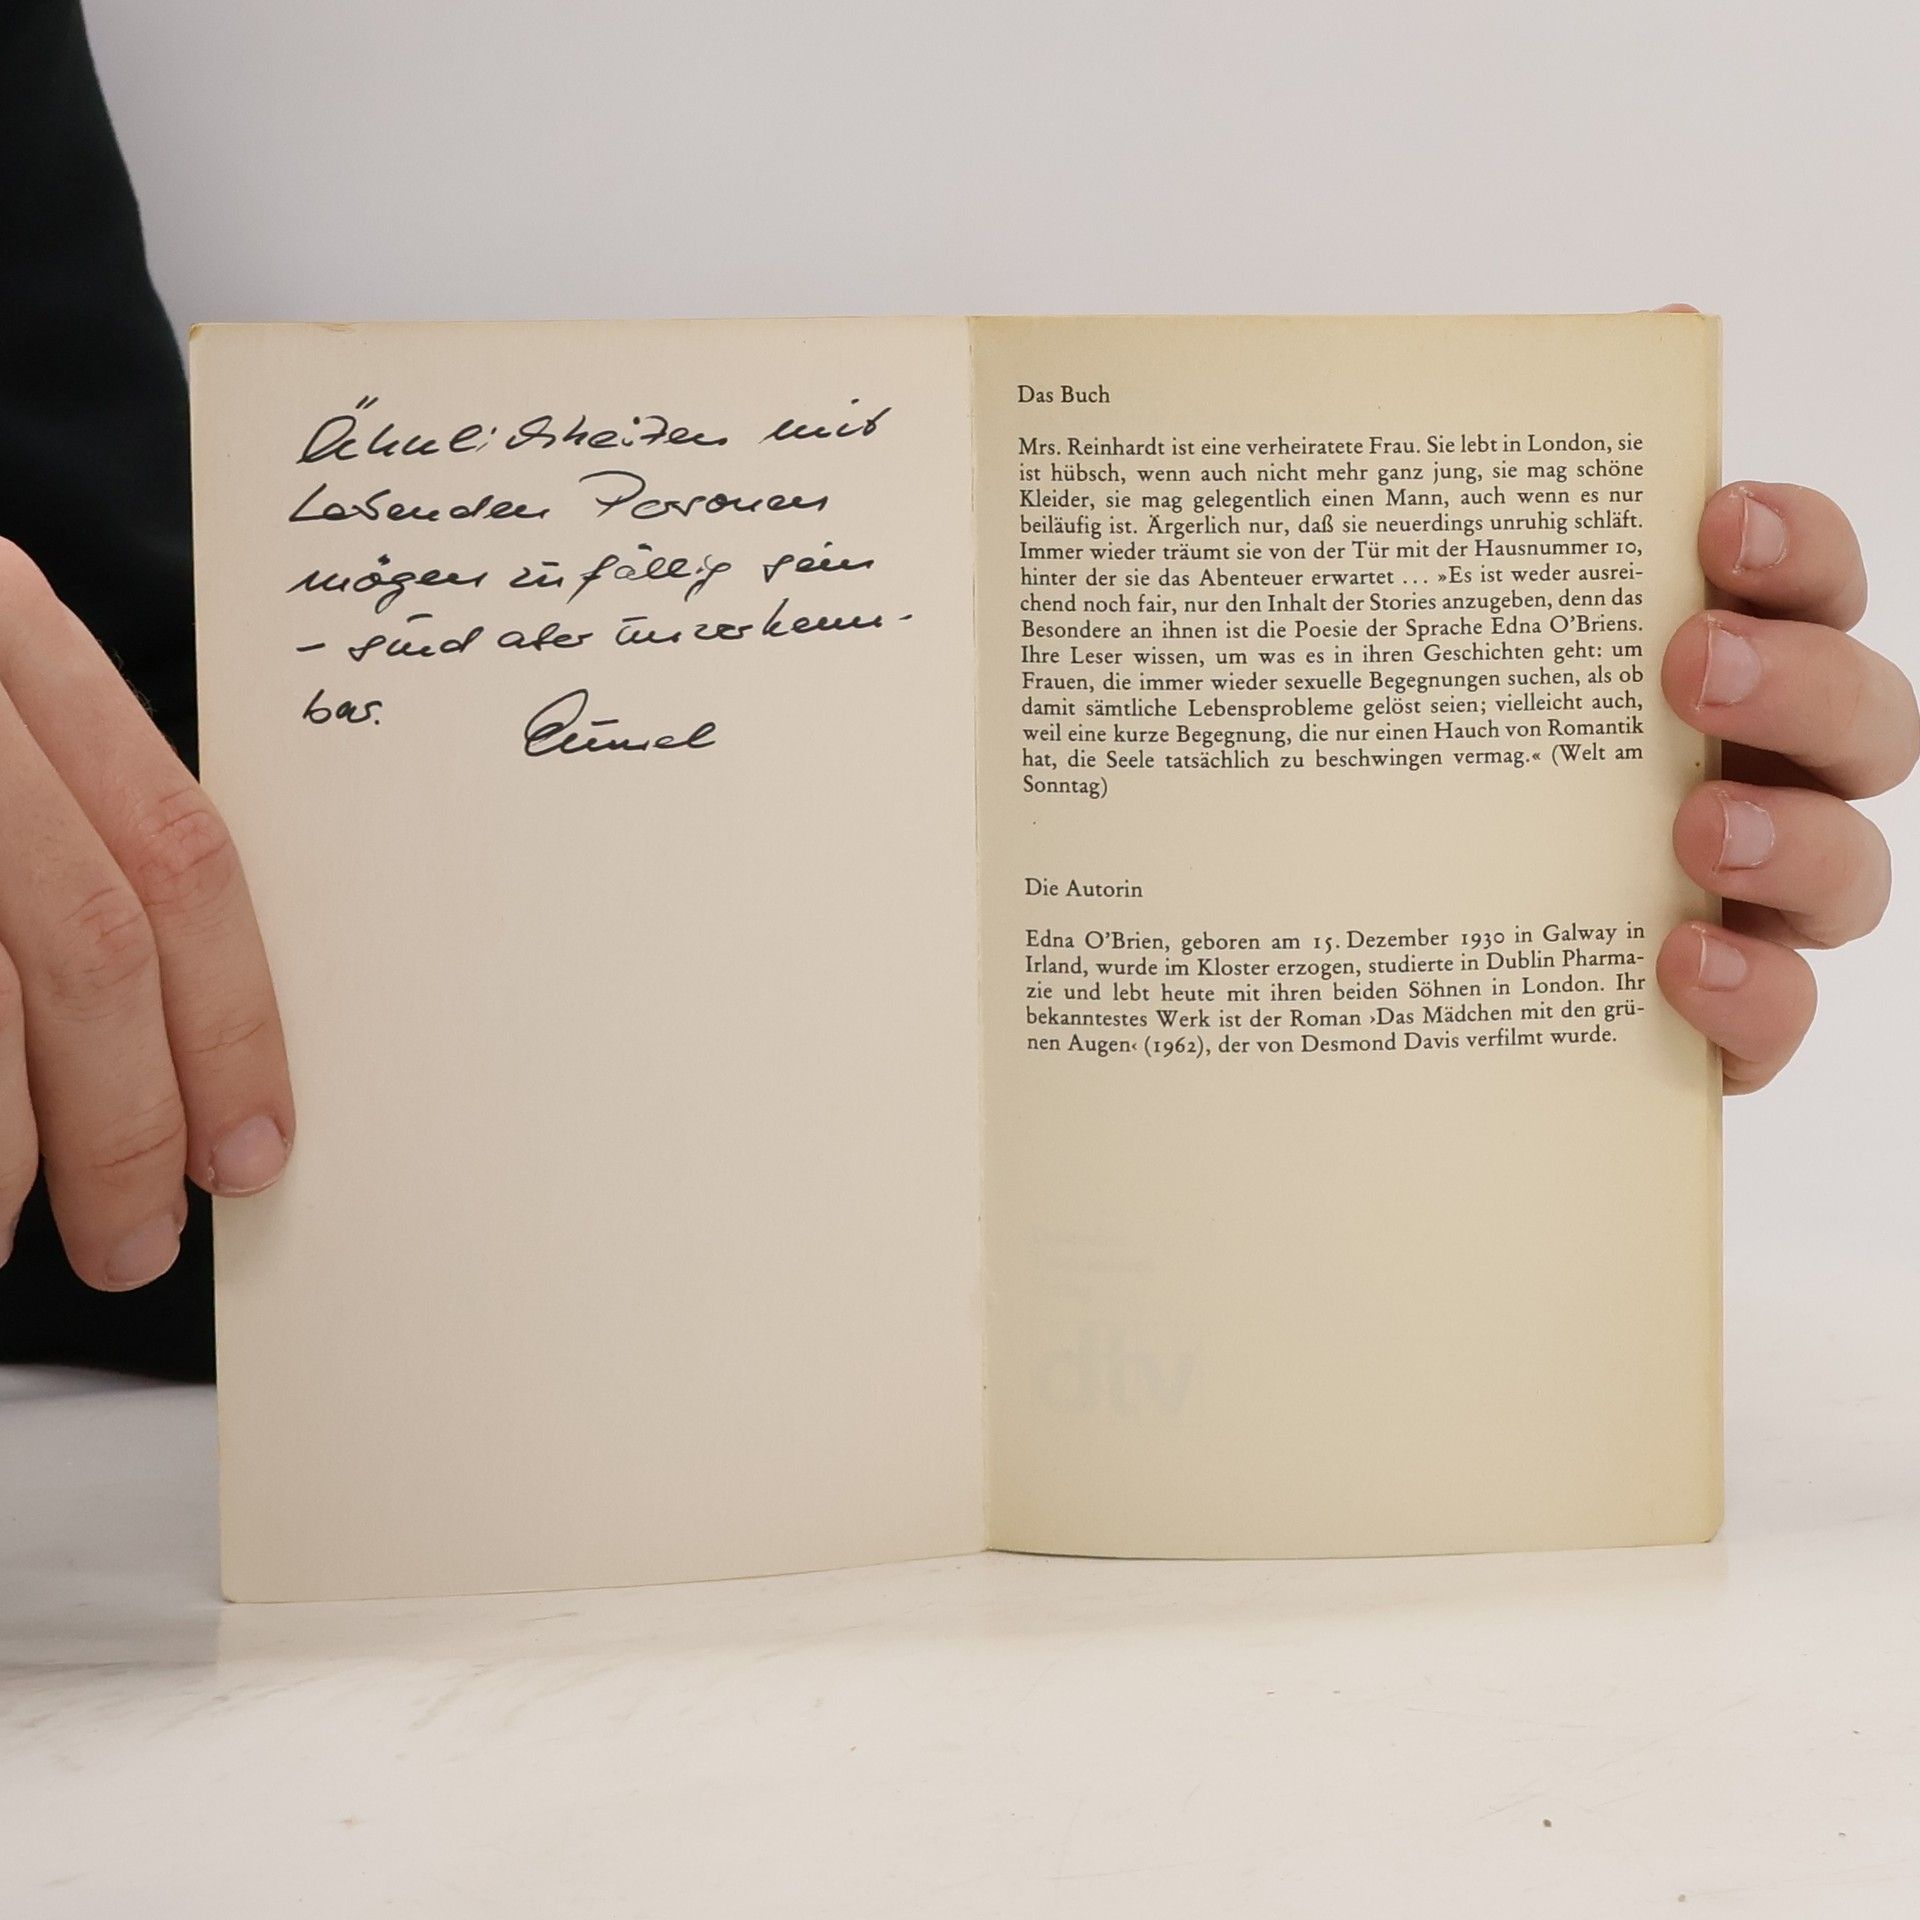 Ähnlichkeiten mit
Lebenden Personen
mögen zufällig sein
– sind aber unverkenn-
bar.
Das Buch
Mrs. Reinhardt ist eine verheiratete Frau. Sie lebt in London, sie
ist hübsch, wenn auch nicht mehr ganz jung, sie mag schöne
Kleider, sie mag gelegentlich einen Mann, auch wenn es nur
beiläufig ist. Ärgerlich nur, daß sie neuerdings unruhig schläft.
Immer wieder träumt sie von der Tür mit der Hausnummer 10,
hinter der sie das Abenteuer erwartet ... »Es ist weder ausrei-
chend noch fair, nur den Inhalt der Stories anzugeben, denn das
Besondere an ihnen ist die Poesie der Sprache Edna O’Briens.
Ihre Leser wissen, um was es in ihren Geschichten geht: um
Frauen, die immer wieder sexuelle Begegnungen suchen, als ob
damit sämtliche Lebensprobleme gelöst seien; vielleicht auch,
weil eine kurze Begegnung, die nur einen Hauch von Romantik
hat, die Seele tatsächlich zu beschwingen vermag.« (Welt am
Sonntag)
Die Autorin
Edna O’Brien, geboren am 15. Dezember 1930 in Galway in
Irland, wurde im Kloster erzogen, studierte in Dublin Pharma-
zie und lebt heute mit ihren beiden Söhnen in London. Ihr
bekanntestes Werk ist der Roman ›Das Mädchen mit den grü-
nen Augen‹ (1962), der von Desmond Davis verfilmt wurde.
dtv